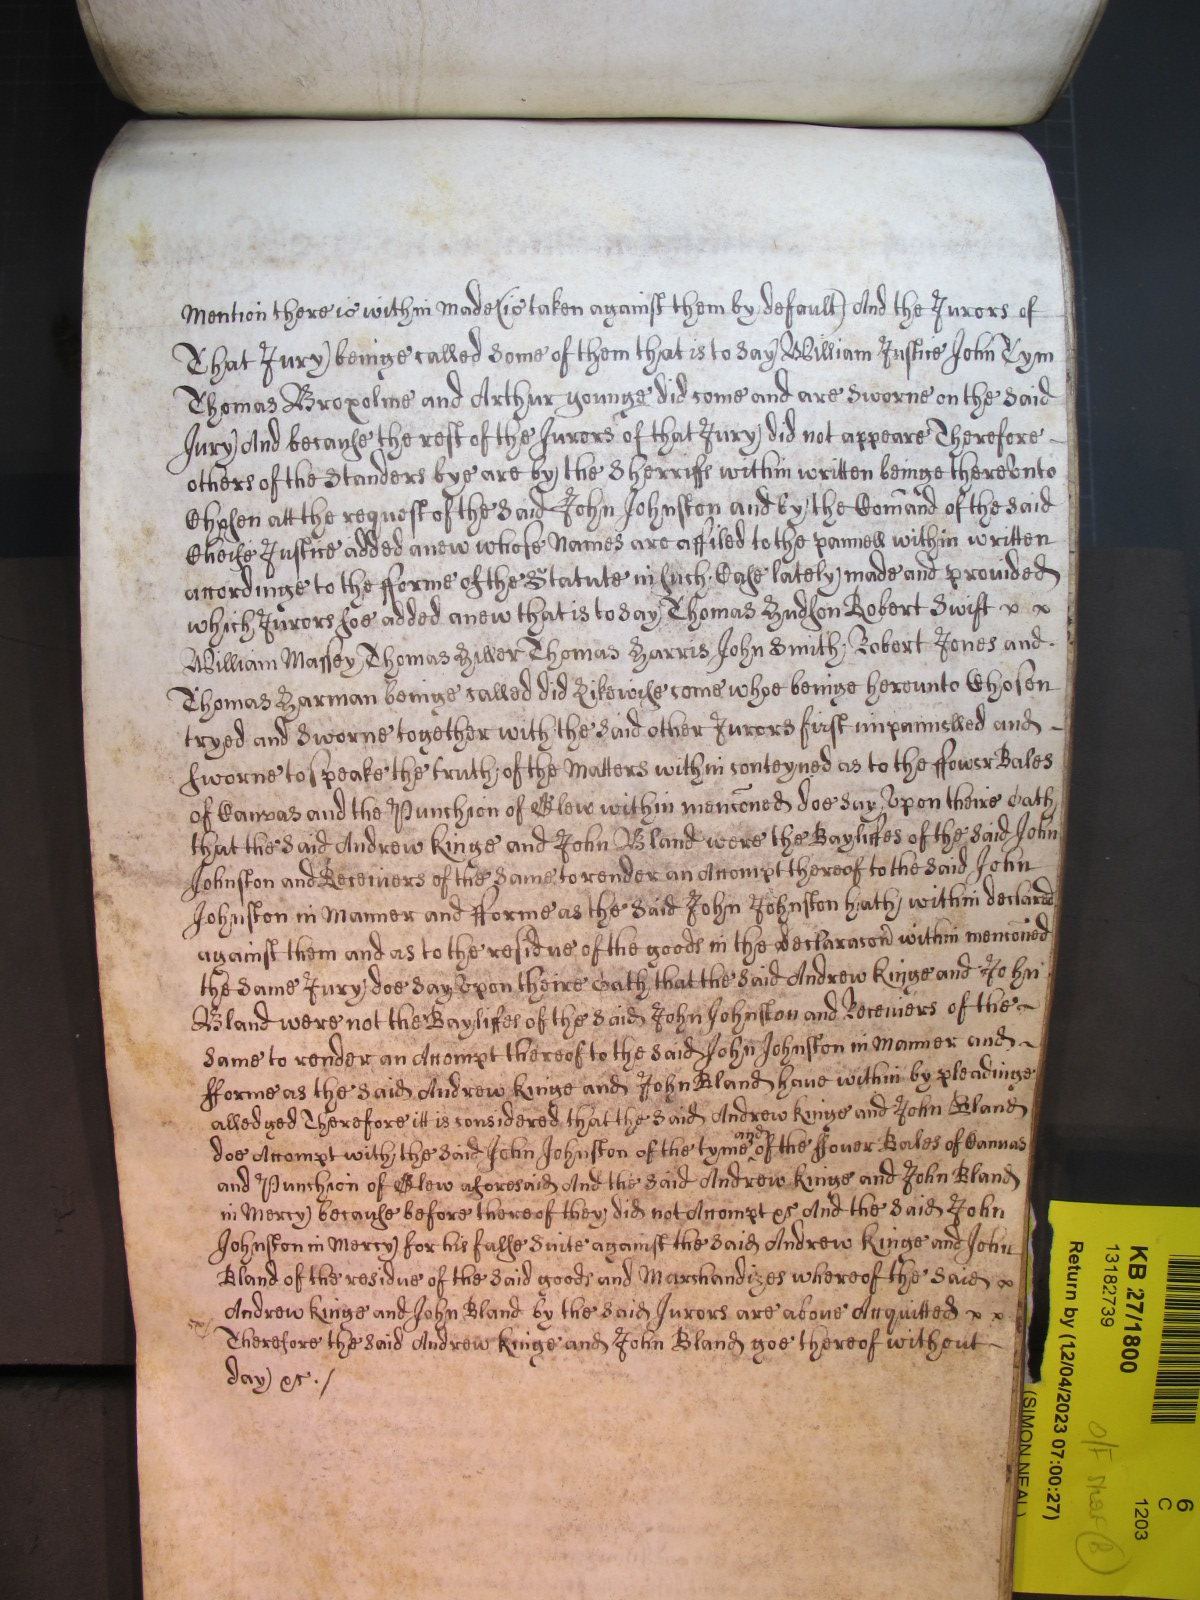 Mention there is within made (is taken against them by default) And the Jurors of
That Jury beinge called Some of them that is to Say William Justice John Tym
Thomas Broxolme and Arthur younge did come and are Sworne on the Said
Jury And because the rest of the Jurors of that Jury did not appeare Therefore
others of the Standers bye are by the Sherriffs within written beinge thereunto
Chosen att the request of the Said John Johnston and by the Comand of the Said
Cheife Justice added anew whose Names are affiled to the pannell within written
accordinge to the fforme of the Statute in such Case lately made and provided
which Jurors soe added anew that is to Say Thomas Hudson Robert Swift x x
William Massey Thomas Hiller Thomas Harris John Smith Robert Jones and
Thomas Harman beinge called did Likewise come whoe beinge hereunto Chosen
tryed and Sworne together with the Said other Jurors first impannelled and
sworne to speake the truth of the Matters within conteyned as to the ffower Bales
of Canvas and the Punchion of Glew within menconed doe Say Upon theire Oath
that the Said Andrew Kinge and John Bland were the Bayliffes of the Said John
Johnston and Receivers of the Same to render an Accompt thereof to the Said John
Johnston in Manner and fforme as the Said John Johnston hath within declared
against them and as to the residue of the goods in the declaracon within menconed
the Same Jury doe Say Upon theire Oath that the Said Andrew Kinge and John
Bland were not the Bayliffes of the Said John Johnston and Receivers of the
Same to render an Accompt thereof to the Said John Johnston in Manner and
fforme as the Said Andrew Kinge and John Bland have within by pleadinge
alledged Therefore itt is considered that the Said Andrew Kinge and John Bland
doe Accompt with the Said John Johnston of the tyme and of the ffouer Bales of Canvas
and Punchion of Glew aforesaid And the Said Andrew Kinge and John Bland
in Mercy because before thereof they did not Accompt &c And the Said John
Johnston in Mercy for his false Suite against the Said Andrew Kinge and John
Bland of the residue of the Said goods and Marchandizes whereof the Said x
Andrew Kinge and John Bland by the Said Jurors are above Acquitted x x
Therefore the Said Andrew Kinge and John Bland goe thereof without
day &c. /
KB 27/1800
13182739
Return by (12/04/2023 07:00:27)
(SIMON NEAL)
6
C
1203